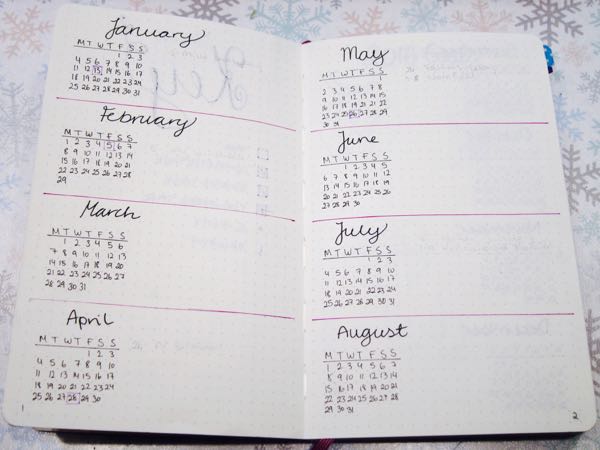 January
M T W T F S S
1 2 3
4 5 6 7 8 9 10
11 12 13 14 15 16 17
18 19 20 21 22 23 24
25 26 27 28 29 30 31
February
M T W T F S S
1 2 3 4 5 6 7
8 9 10 11 12 13 14
15 16 17 18 19 20 21
22 23 24 25 26 27 28
29
March
M T W T F S S
1 2 3 4 5 6
7 8 9 10 11 12 13
14 15 16 17 18 19 20
21 22 23 24 25 26 27
28 29 30 31
April
M T W T F S S
1 2 3
4 5 6 7 8 9 10
11 12 13 14 15 16 17
18 19 20 21 22 23 24
25 26 27 28 29 30
1
May
M T W T F S S
1
2 3 4 5 6 7 8
9 10 11 12 13 14 15
16 17 18 19 20 21 22
23 24 25 26 27 28 29
30 31
June
M T W T F S S
1 2 3 4 5
6 7 8 9 10 11 12
13 14 15 16 17 18 19
20 21 22 23 24 25 26
27 28 29 30
July
M T W T F S S
1 2 3
4 5 6 7 8 9 10
11 12 13 14 15 16 17
18 19 20 21 22 23 24
25 26 27 28 29 30 31
August
M T W T F S S
1 2 3 4 5 6 7
8 9 10 11 12 13 14
15 16 17 18 19 20 21
22 23 24 25 26 27 28
29 30 31
2